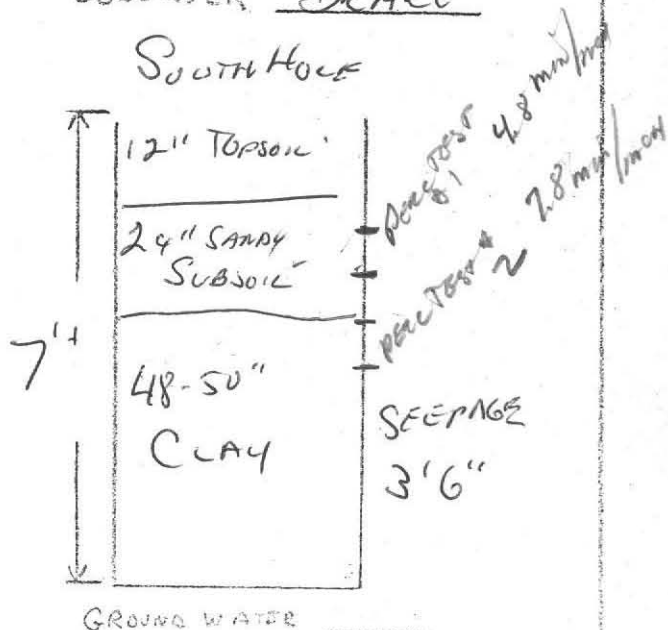 SOUTH HOLE
12" TOPSOIL
24" SANDY
SUBSOIL
48-50"
CLAY
7'+
PERC TEST
#1 4.8 min/inch
PERC TEST #
2 28 min/inch
SEEPAGE
3'6"
GROUND WATER